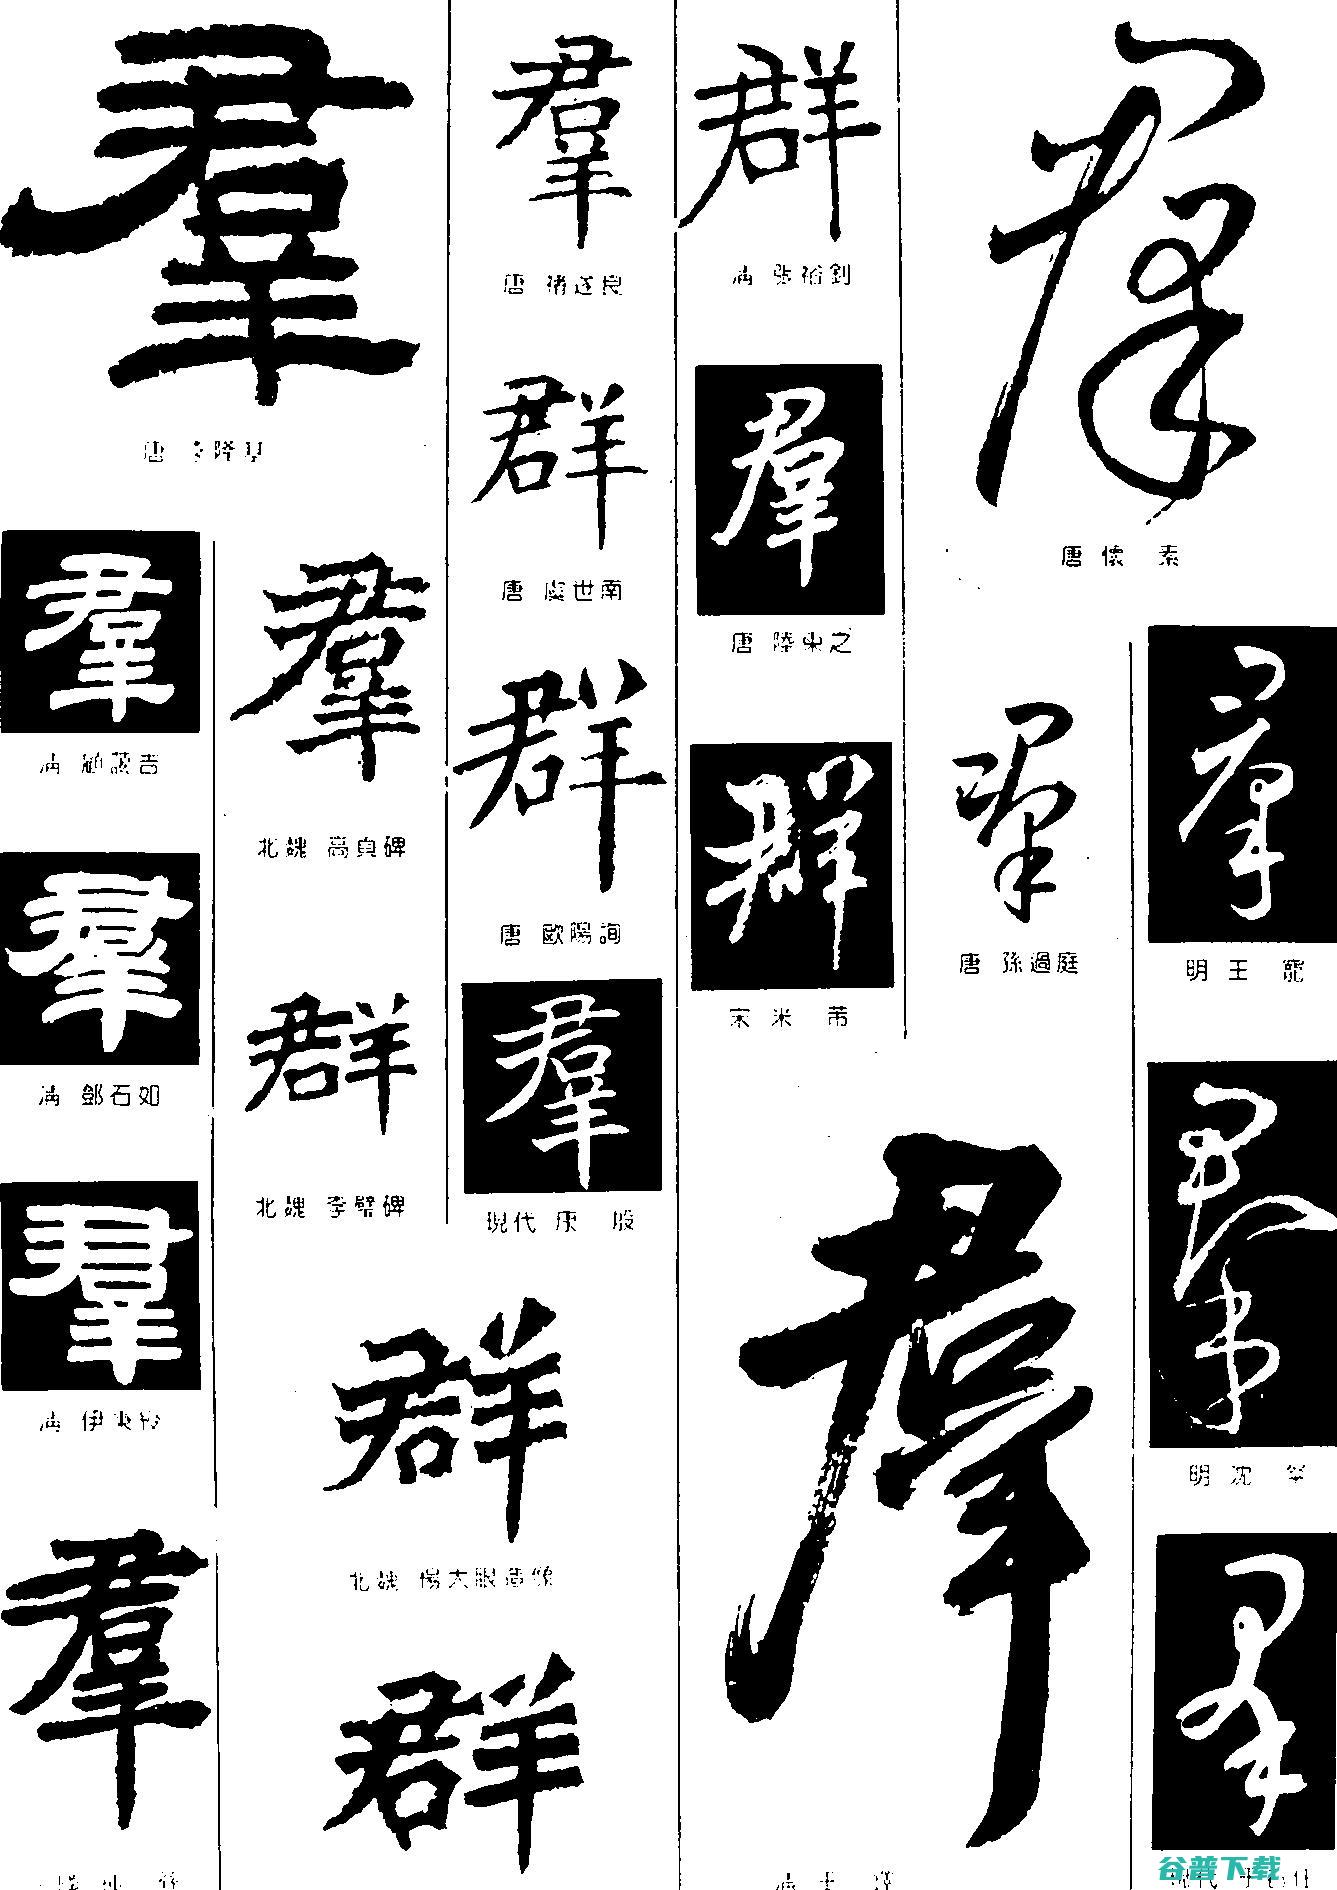 羣
唐 李隆基
羣
清 顧藹吉
羣
清 鄧石如
羣
清 伊秉綬
羣
羣
北魏 高貞碑
群
北魏 李璧碑
群
北魏 楊大眼造像
群
羣
唐 褚遂良
群
唐 虞世南
群
唐 歐陽詢
羣
現代 康 殷
群
清 張裕釗
羣
唐 陸柬之
群
宋 米 芾
羣
羣
唐 懷 素
羣
唐 孫過庭
羣
明 王 寵
羣
明 沈 粲
羣
谷普下载